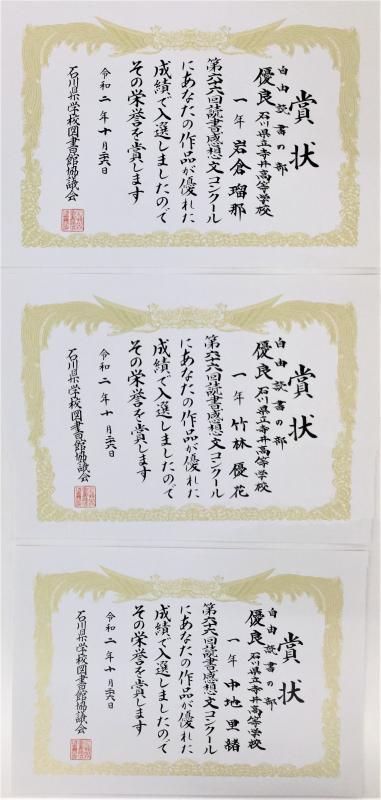 賞状
自由読書の部
優良 石川県立寺井高等学校
一年 岩倉 瑠那
第六十六回読書感想文コンクール
にあなたの作品が優れた
成績で入選しましたので
その栄誉を賞します
令和二年十月二六日
石川県学校図書館協議会
賞状
自由読書の部
優良 石川県立寺井高等学校
一年 竹林 優花
第六十六回読書感想文コンクール
にあなたの作品が優れた
成績で入選しましたので
その栄誉を賞します
令和二年十月二六日
石川県学校図書館協議会
賞状
自由読書の部
優良 石川県立寺井高等学校
一年 中地 里緒
第六十六回読書感想文コンクール
にあなたの作品が優れた
成績で入選しましたので
その栄誉を賞します
令和二年十月二六日
石川県学校図書館協議会